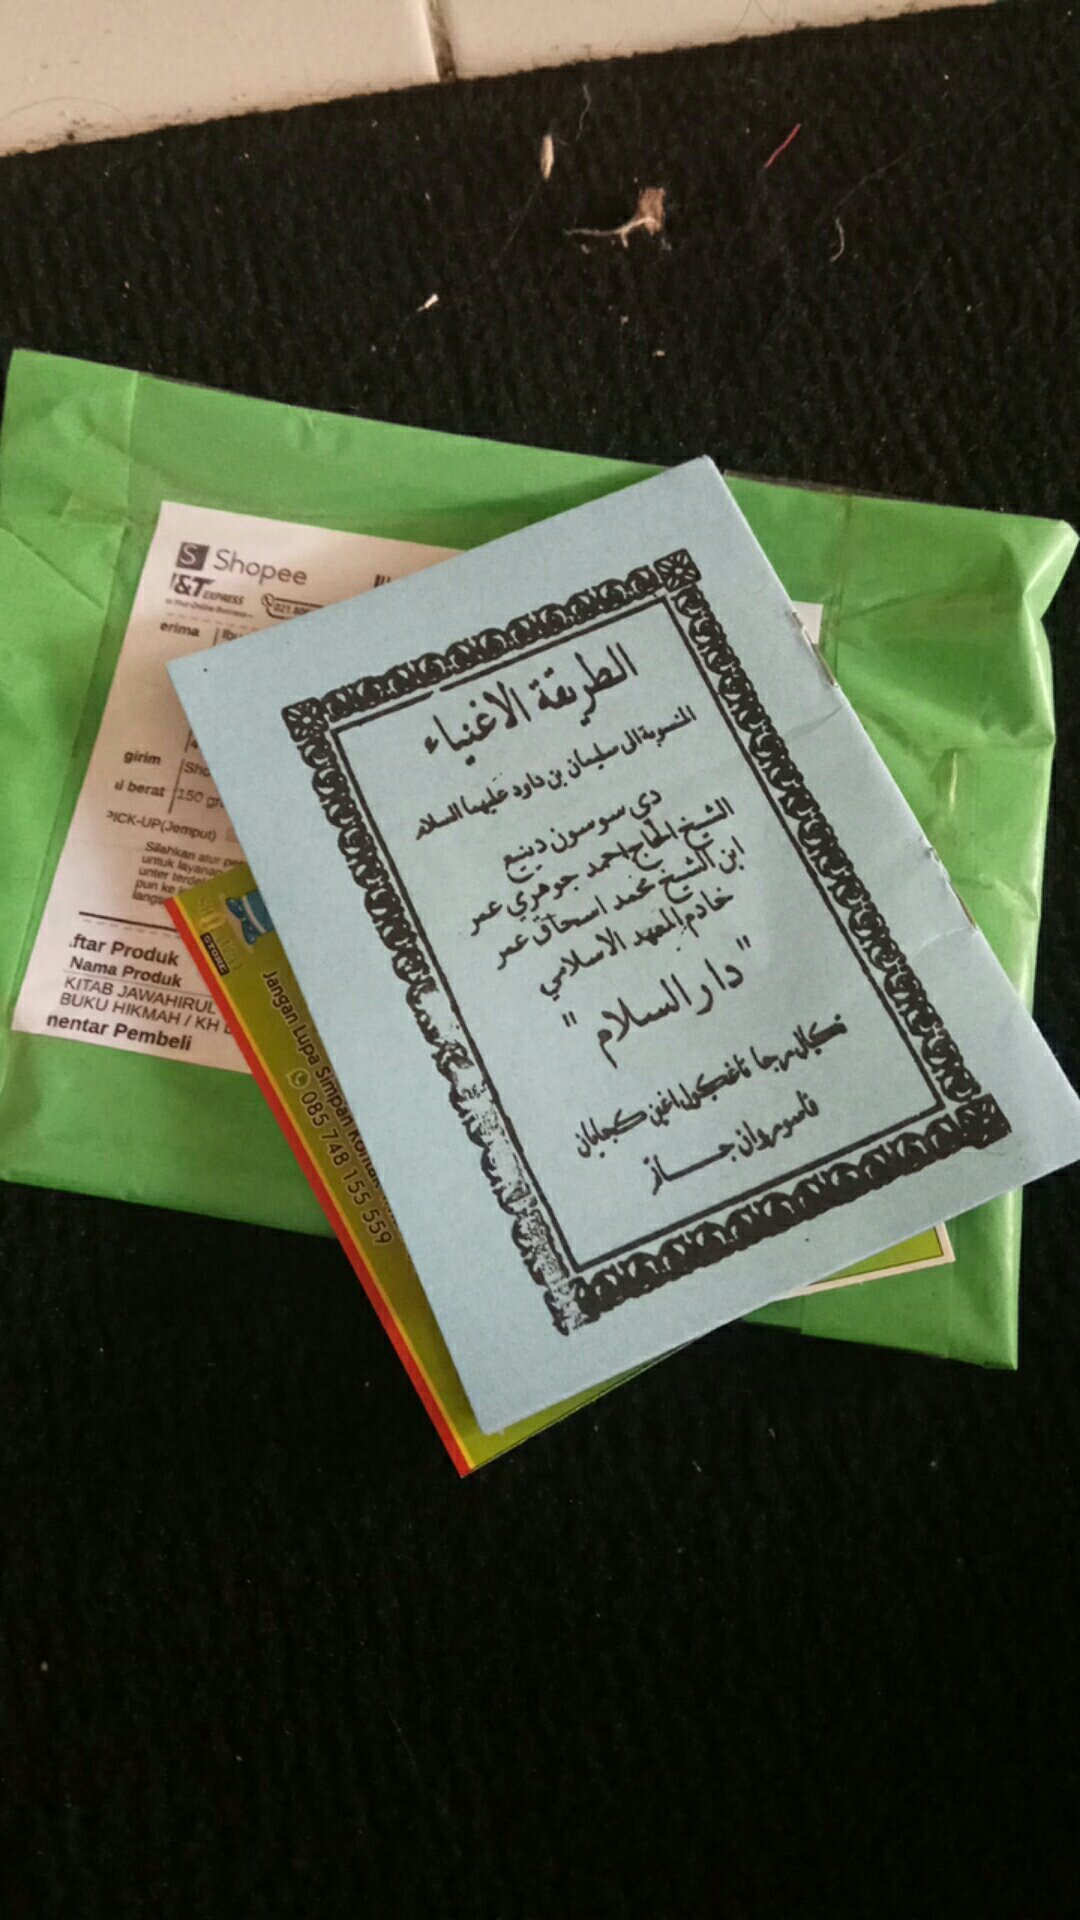 Shopee
J&T EXPRESS
erima
girim
berat
150 gr
PICK-UP(Jemput)
Silahkan atur
untuk layanan
pun ke
langs
ftar Produk
Nama Produk
KITAB JAWAHIRUL
BUKU HIKMAH / KH
mentar Pembeli
STORE
Jangan Lupa Simpan Kontak
085 748 155 559
الطريقة الاغنياء
المنسوبة الى سليمان بن داود عليهما السلام
دي سوسون دينيع
الشيخ الحاج احمد جوهري عمر
ابن الشيخ محمد اسحاق عمر
خادم المعهد الاسلامي
" دار السلام "
فاسوروان جـــــاتم